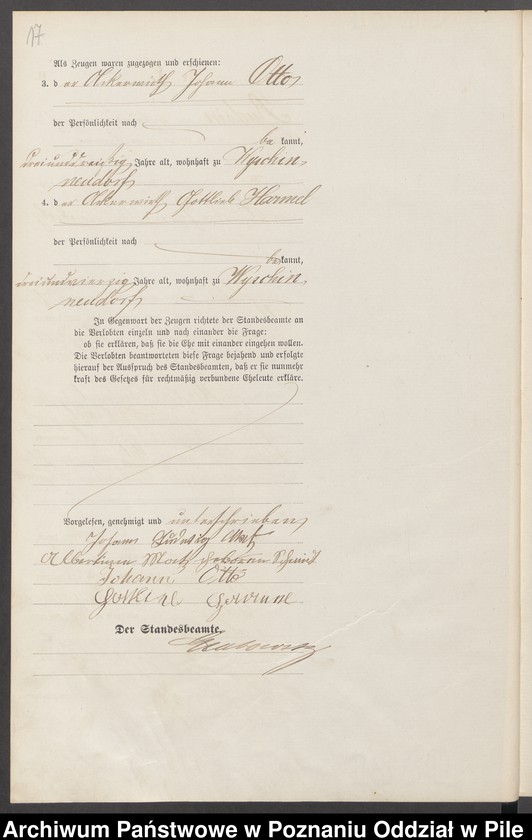 17
Als Zeugen waren zugezogen und erschienen:
3. der Ackerwirth Johann Otto
der Persönlichkeit nach
bekannt,
dreiunddreißig Jahre alt, wohnhaft zu Wyschin
neudorf
4. der Ackerwirth Gottlieb Harmel
der Persönlichkeit nach
bekannt,
dreiundvierzig Jahre alt, wohnhaft zu Wyschin
neudorf
In Gegenwart der Zeugen richtete der Standesbeamte an
die Verlobten einzeln und nach einander die Frage:
ob sie erklären, daß sie die Ehe mit einander eingehen wollen.
Die Verlobten beantworteten diese Frage bejahend und erfolgte
hierauf der Ausspruch des Standesbeamten, daß er sie nunmehr
kraft des Gesetzes für rechtmäßig verbundene Eheleute erkläre.
Vorgelesen, genehmigt und unterschrieben
Johann Ludwig
geborene
Johann Otto
Der Standesbeamte.
Archiwum Państwowe w Poznaniu Oddział w Pile